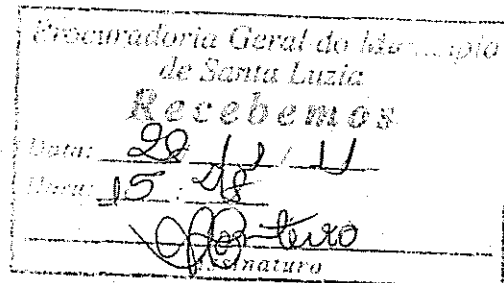 Procuradoria Geral do Município
de Santa Luzia
Recebemos
Data: / 11 / 11
Hora: 15 :
Assinatura